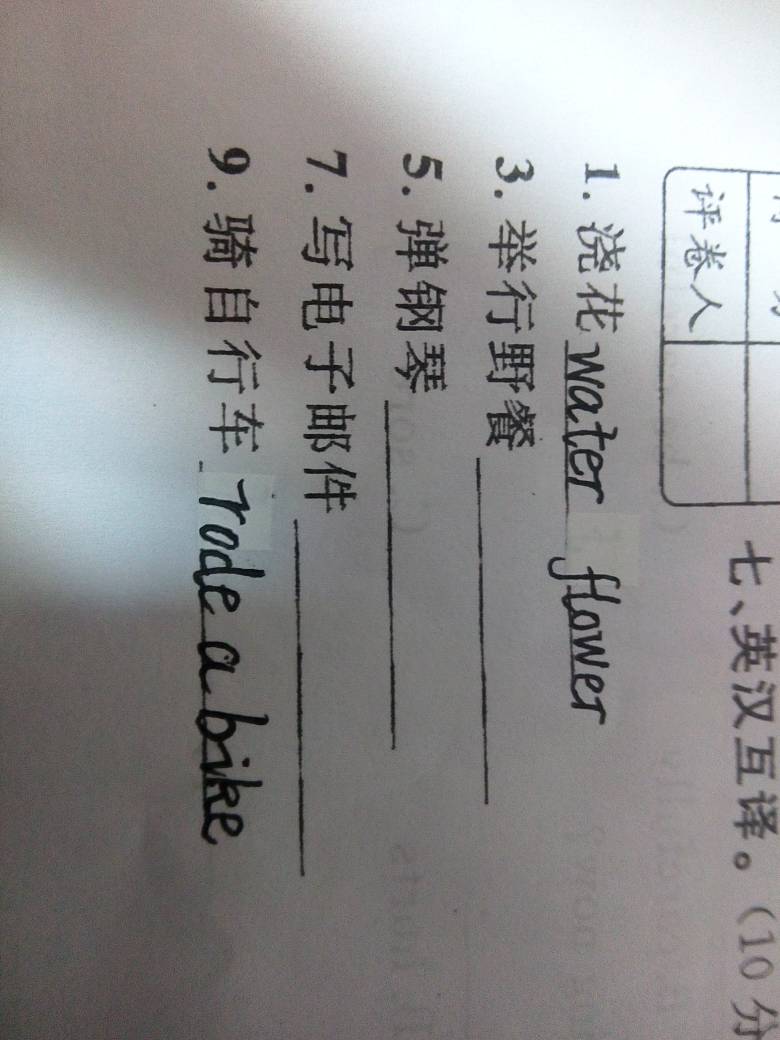 评卷人
七、英汉互译。（10分
1. 浇花 water flower
3. 举行野餐
5. 弹钢琴
7. 写电子邮件
9. 骑自行车 rode a bike